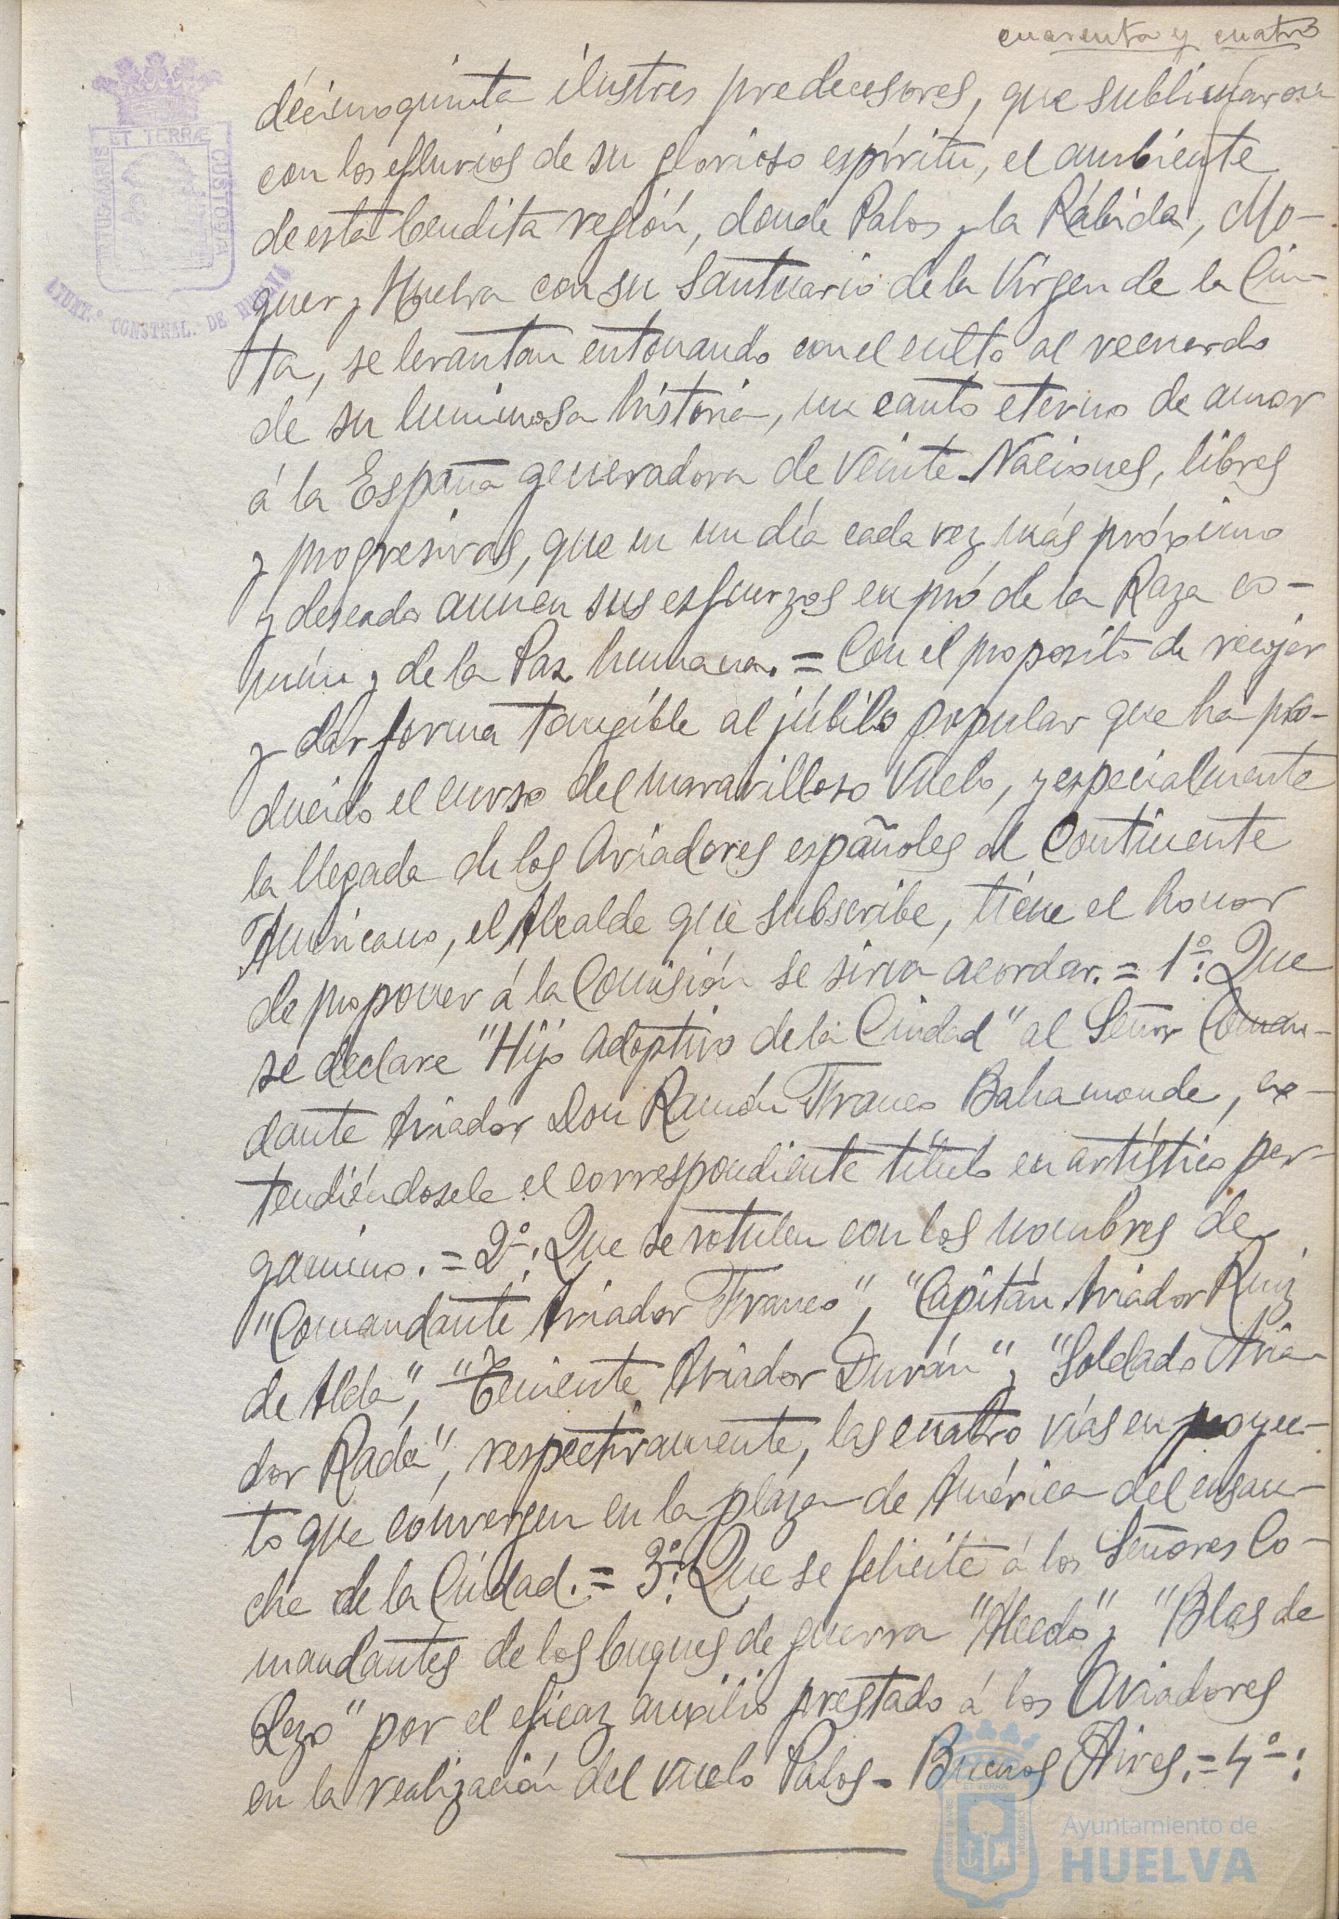 cuarenta y cuatro
décimoquinta ilustres predecesores, que sublimaron
con los efluvios de su glorioso espíritu, el ambiente
de esta bendita región, donde Palos y la Rábida, Mo-
guer y Huelva con su Santuario de la Virgen de la Cin-
ta, se levantan entonando con el culto al recuerdo
de su luminosa historia, un canto eterno de amor
á la España generadora de veinte Naciones, libres
y progresivas, que en un día cada vez más próximo
y deseado aunen sus esfuerzos en pró de la Raza co-
mún y de la Paz humana. = Con el proposito de recojer
y dar forma tangible al júbilo popular que ha pro-
ducido el curso del maravilloso vuelo, y especialmente
la llegada de los Aviadores españoles al Continente
Americano, el Alcalde que subscribe, tiene el honor
de proponer á la Comisión se sirva acordar. = 1º: Que
se declare "Hijo Adoptivo de la Ciudad" al Señor Coman-
dante Aviador Don Ramón Franco Bahamonde, ex-
tendiéndosele el correspondiente título en artístico per-
gamino. = 2º: Que se rotulen con los nombres de
"Comandante Aviador Franco", "Capitán Aviador Ruiz
de Alda", "Teniente Aviador Durán" y "Soldado Avia-
dor Rada", respectivamente, las cuatro vías en proyec-
to que convergen en la plaza de América del ensan-
che de la Ciudad. = 3º: Que se felicite á los Señores Co-
mandantes de los buques de guerra "Alcedo" y "Blas de
Lezo" por el eficaz auxilio prestado á los Aviadores
en la realización del vuelo Palos - Buenos Aires. = 4º:
ET TERRÆ
CUSTODIA
AYUNT.º CONSTNAL. DE HUELVA
Ayuntamiento de
HUELVA